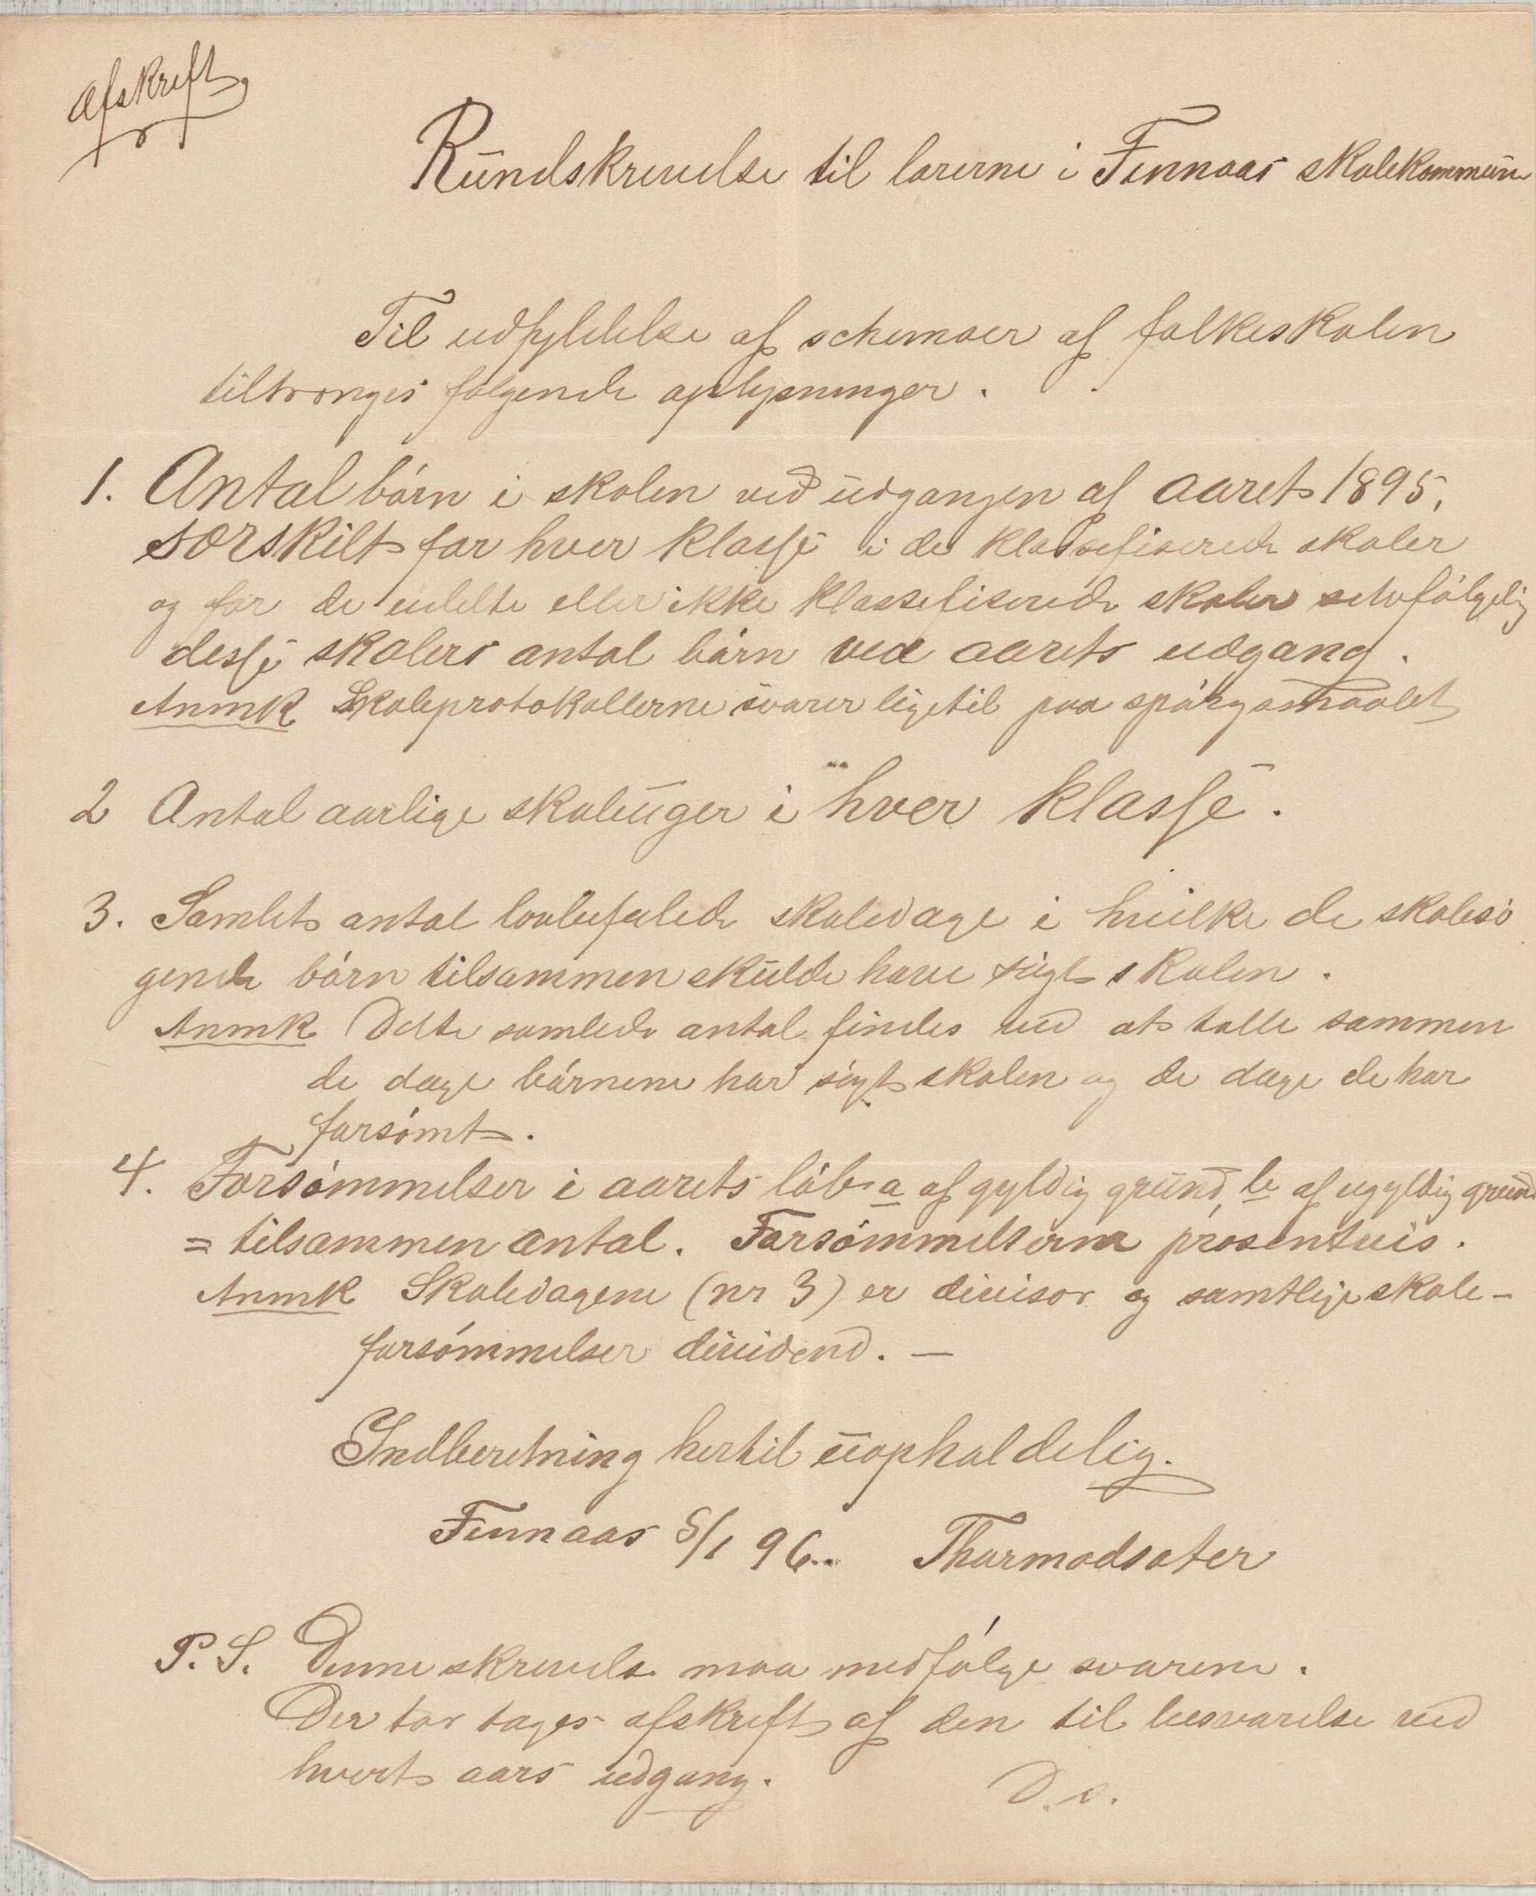 Afskrift
Rundskrivelse til lærerne i Finnaas skolekommune
Til udfyldelse af schemaer af folkeskolen
tiltrænges følgende oplysninger.
1. Antal børn i skolen ved udgangen af aaret 1895,
særskilt for hver klasse i de klassefiserede skoler
og for de udelte eller ikke klassefiserede skoler selvfølgelig
desse skolers antal børn ved aarets udgang.
Anmk Skoleprotokollerne svarer ligetil paa spørgsmaalet
2 Antal aarlige skoleuger i hver klasse.
3. Samlet antal lovbefalede skoledage i hvilke de skolesø
gende børn tilsammen skulde have søgt skolen.
Anmk Dette samlede antal findes ved at tælle sammen
de dage børnene har søgt skolen og de dage de har
forsømt.
4. Forsømmelser i aarets løb a af gyldig grund, b af ugyldig grund
= tilsammen antal. Forsømmelserne prosentvis.
Anmk Skoledagene (nr 3) er divisor og samtlige skole-
forsømmelser dividend. —
Indberetning hertil uopholdelig.
Finnaas 5/1 96. Thormodsæter
P. S. Denne skrivelse maa medfølge svarene.
Der bør tages afskrift af den til besvarelse ved
hvert aars udgang.
D. s.